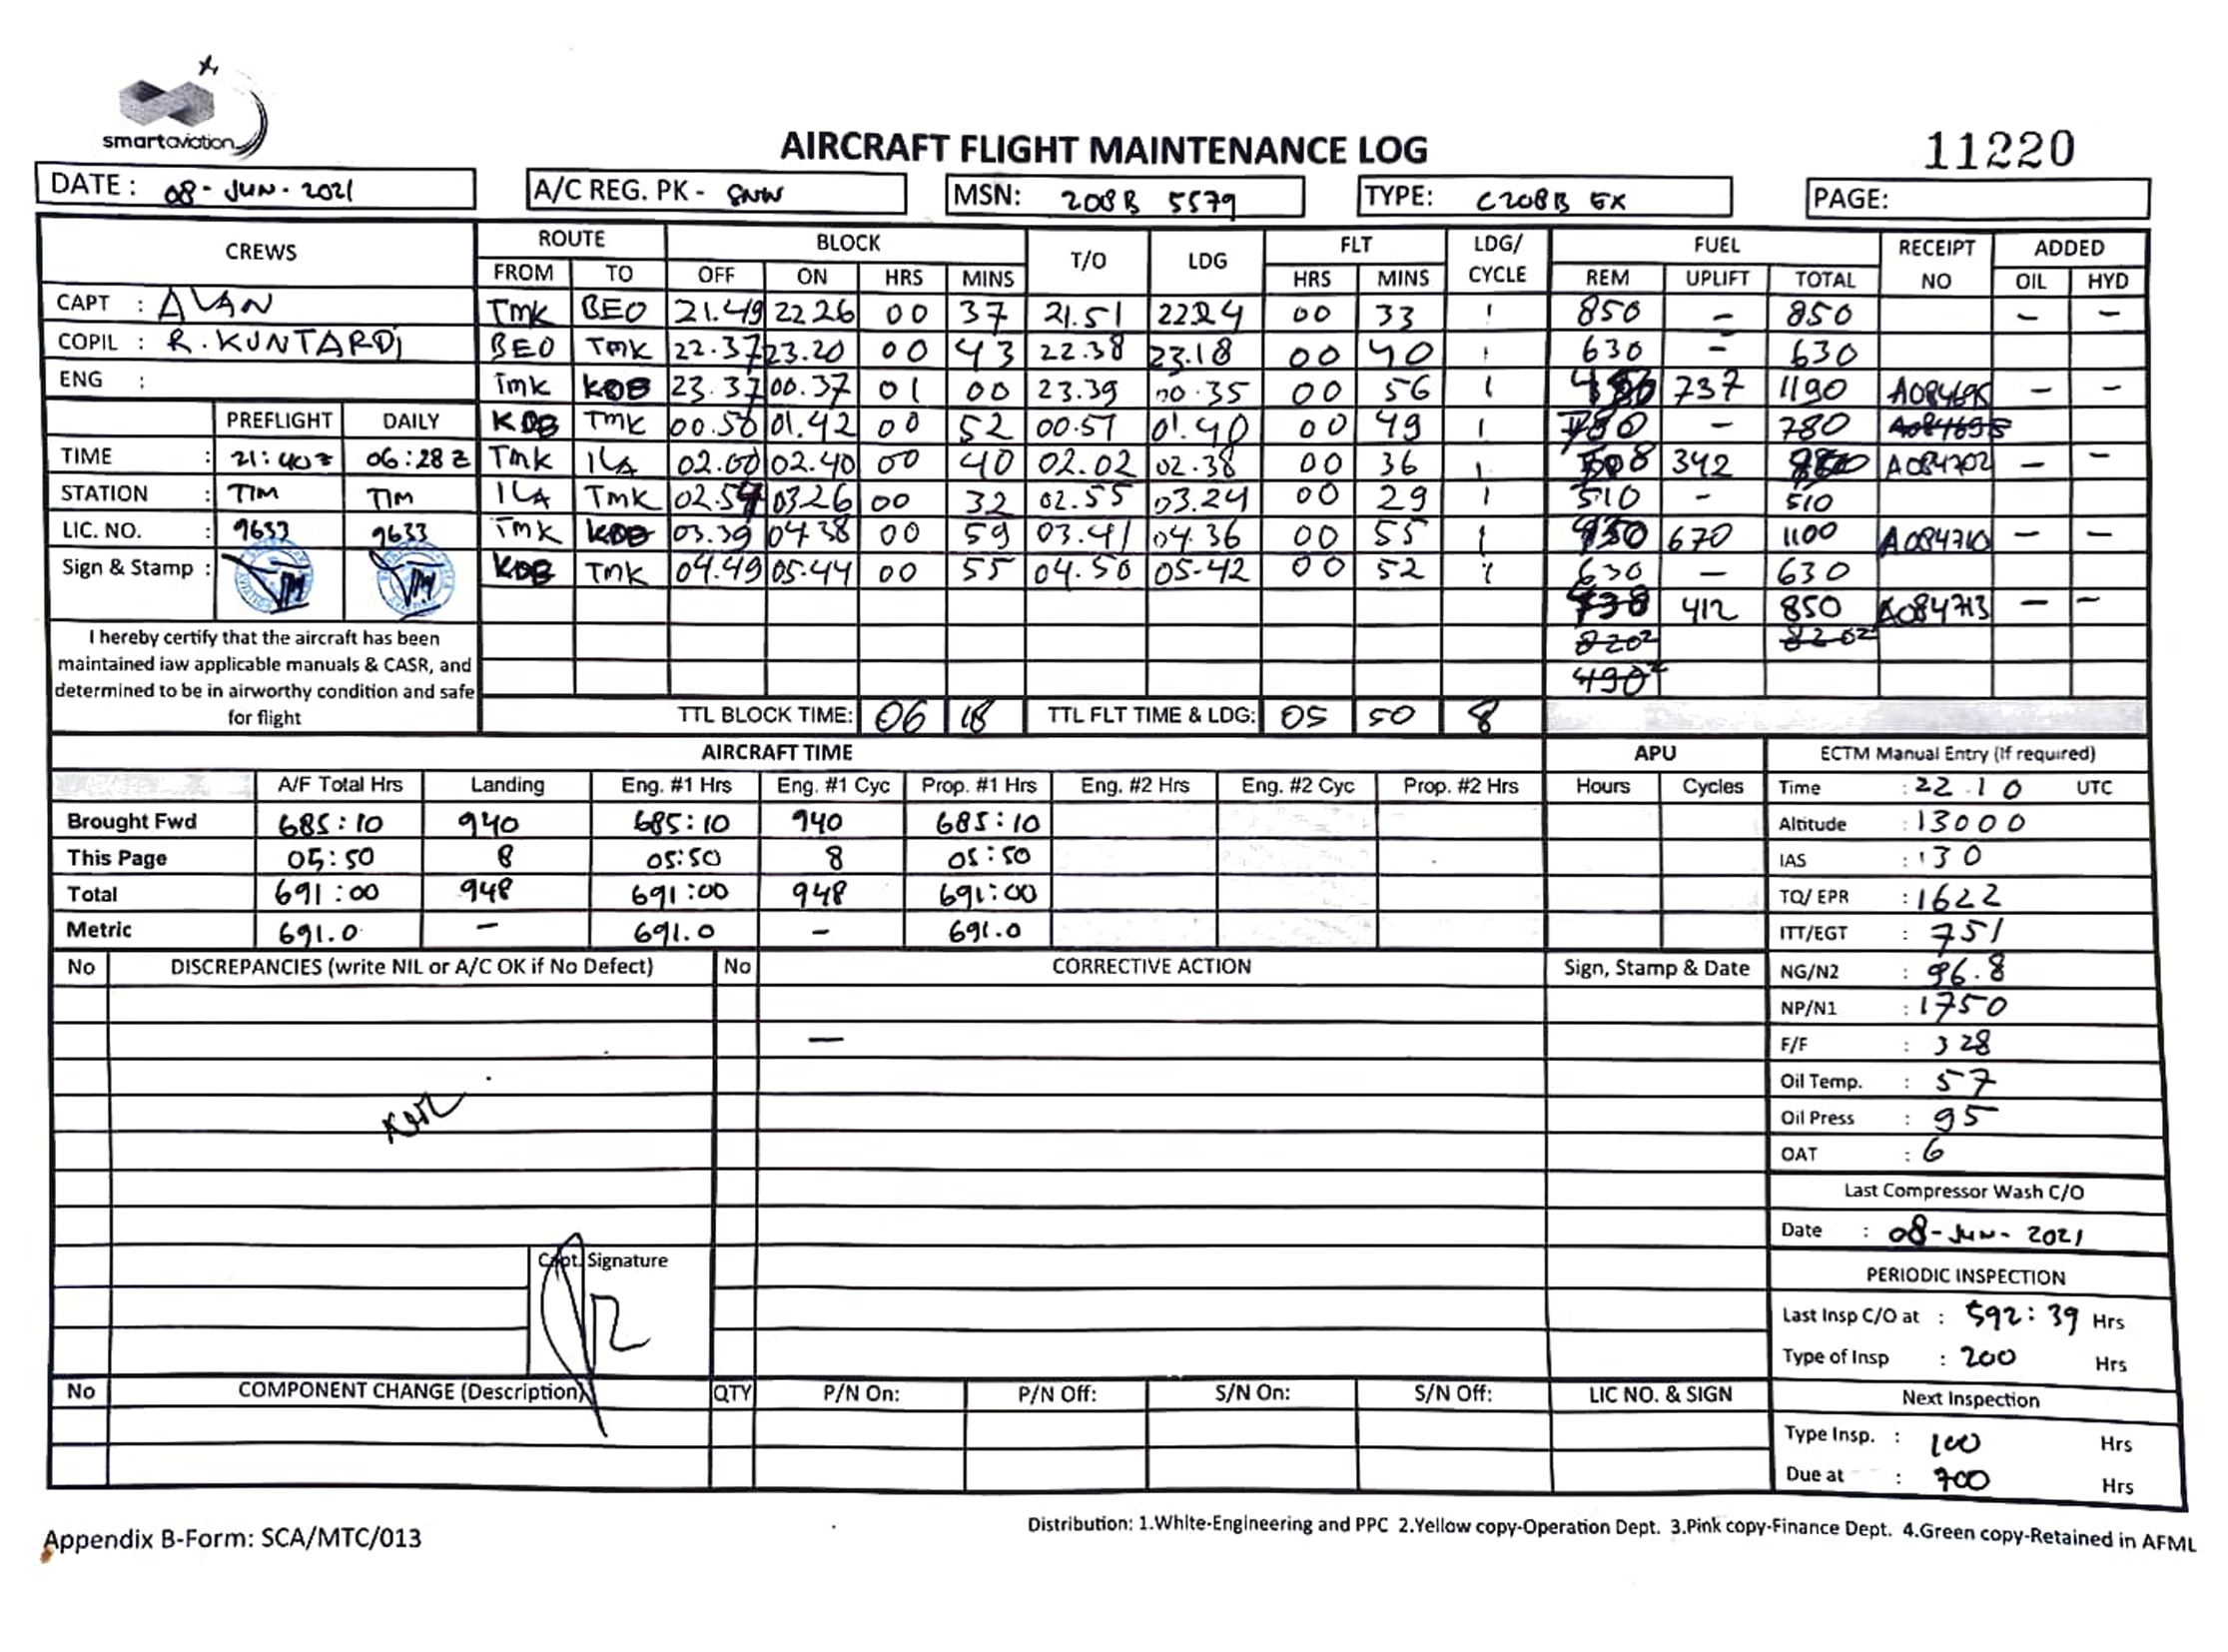 smartaviation
AIRCRAFT FLIGHT MAINTENANCE LOG
11220
DATE : 08-JUN-2021
A/C REG. PK - SNW
MSN: 208B 5579
TYPE: C208B EX
PAGE:
CREWS ROUTE BLOCK T/O LDG FLT LDG/ CYCLE FUEL RECEIPT NO ADDED
FROM TO OFF ON HRS MINS HRS MINS REM UPLIFT TOTAL OIL HYD
CAPT : ALAN
COPIL : R. KUNTARDI
ENG :
TMK BEO 21.49 22 26 00 37 21.51 22 24 00 33 1 850 - 850 - -
BEO TMK 22.37 23.20 00 43 22.38 23.18 00 40 1 630 - 630
TMK KDB 23.37 00.37 01 00 23.39 00.35 00 56 1 737 1190 A084695 - -
KDB TMK 00.50 01.42 00 52 00.51 01.40 00 49 1 780 - 780
TMK ILA 02.00 02.40 00 40 02.02 02.38 00 36 1 508 342 850 A084702 - -
ILA TMK 02.54 03.26 00 32 02.55 03.24 00 29 1 510 - 510
TMK KDB 03.39 04.38 00 59 03.41 04.36 00 55 1 670 1100 A084710 - -
KDB TMK 04.49 05.44 00 55 04.50 05.42 00 52 1 630 - 630
412 850 A084713 - -
PREFLIGHT DAILY
TIME : 21:40z 06:28z
STATION : TIM TIM
LIC. NO. : 9633 9633
Sign & Stamp :
I hereby certify that the aircraft has been
maintained iaw applicable manuals & CASR, and
determined to be in airworthy condition and safe
for flight
TTL BLOCK TIME: 06 18 TTL FLT TIME & LDG: 05 50 8
AIRCRAFT TIME APU
A/F Total Hrs Landing Eng. #1 Hrs Eng. #1 Cyc Prop. #1 Hrs Eng. #2 Hrs Eng. #2 Cyc Prop. #2 Hrs Hours Cycles
Brought Fwd 685:10 940 685:10 940 685:10
This Page 05:50 8 05:50 8 05:50
Total 691:00 948 691:00 948 691:00
Metric 691.0 - 691.0 - 691.0
ECTM Manual Entry (If required)
Time : 22.10 UTC
Altitude : 13000
IAS : 130
TQ/ EPR : 1622
ITT/EGT : 751
NG/N2 : 96.8
NP/N1 : 1750
F/F : 328
Oil Temp. : 57
Oil Press : 95
OAT : 6
Last Compressor Wash C/O
Date : 08-JUN-2021
PERIODIC INSPECTION
Last Insp C/O at : 592:39 Hrs
Type of Insp : 200 Hrs
Next Inspection
Type Insp. : 100 Hrs
Due at : 700 Hrs
No DISCREPANCIES (write NIL or A/C OK if No Defect) No CORRECTIVE ACTION Sign, Stamp & Date
—
Capt. Signature
No COMPONENT CHANGE (Description) QTY P/N On: P/N Off: S/N On: S/N Off: LIC NO. & SIGN
Distribution: 1.White-Engineering and PPC 2.Yellow copy-Operation Dept. 3.Pink copy-Finance Dept. 4.Green copy-Retained in AFML
Appendix B-Form: SCA/MTC/013